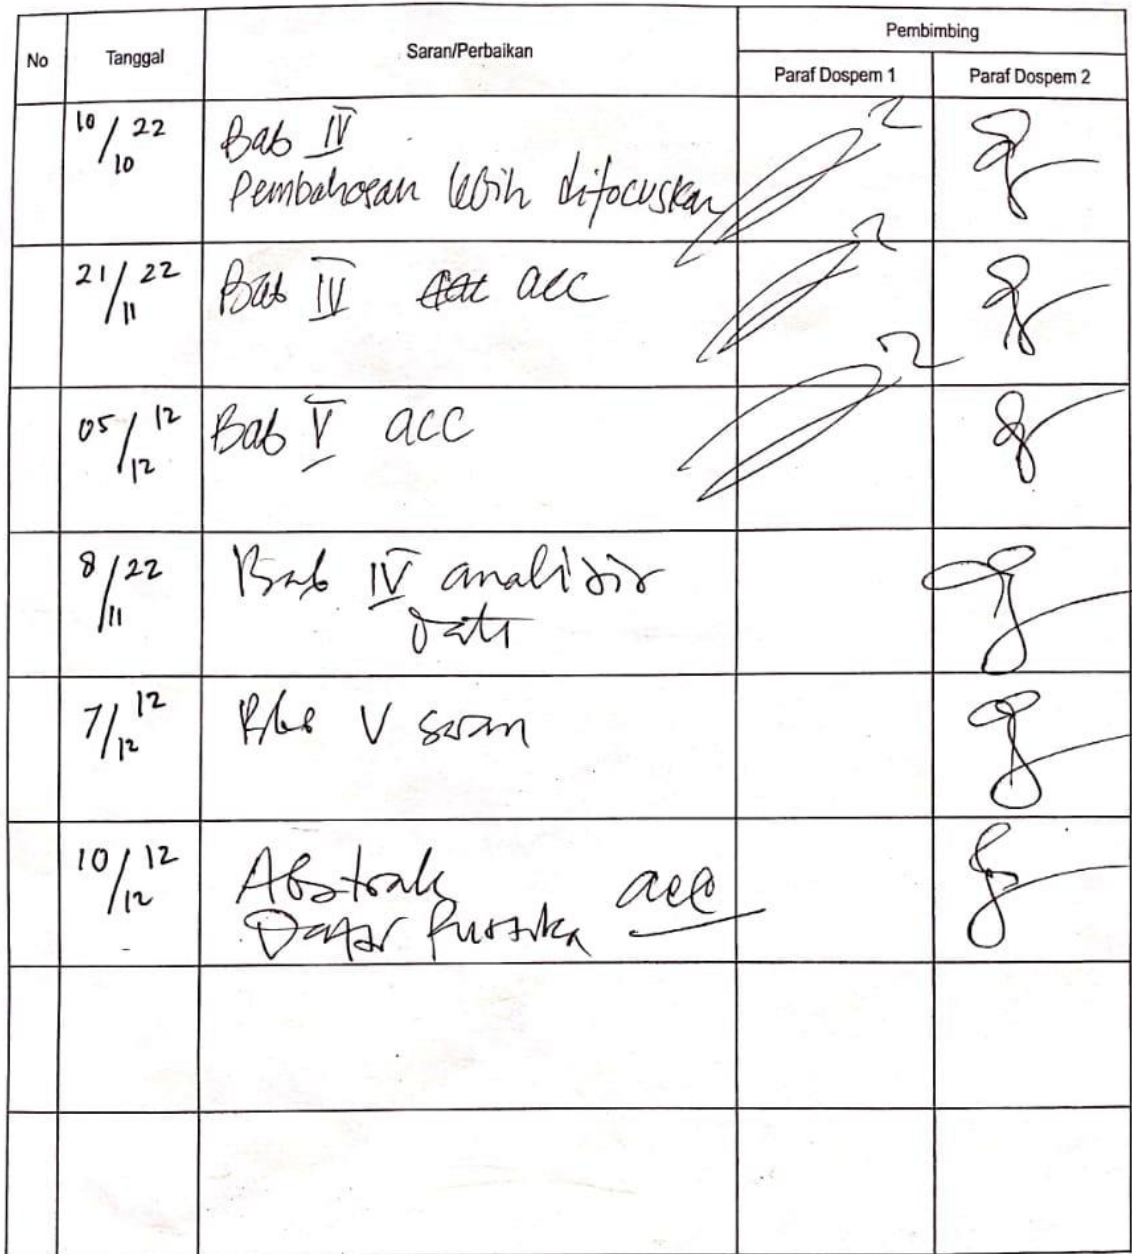 No Tanggal Saran/Perbaikan Pembimbing
Paraf Dospem 1 Paraf Dospem 2
10/10 22 Bab IV
Pembahasan lebih difocuskan
21/11 22 Bab IV acc
05/12 12 Bab V acc
8/11 22 Bab IV analisis
Data
7/12 12 Bab V saran
10/12 12 Abstrak acc
Daftar Pustaka